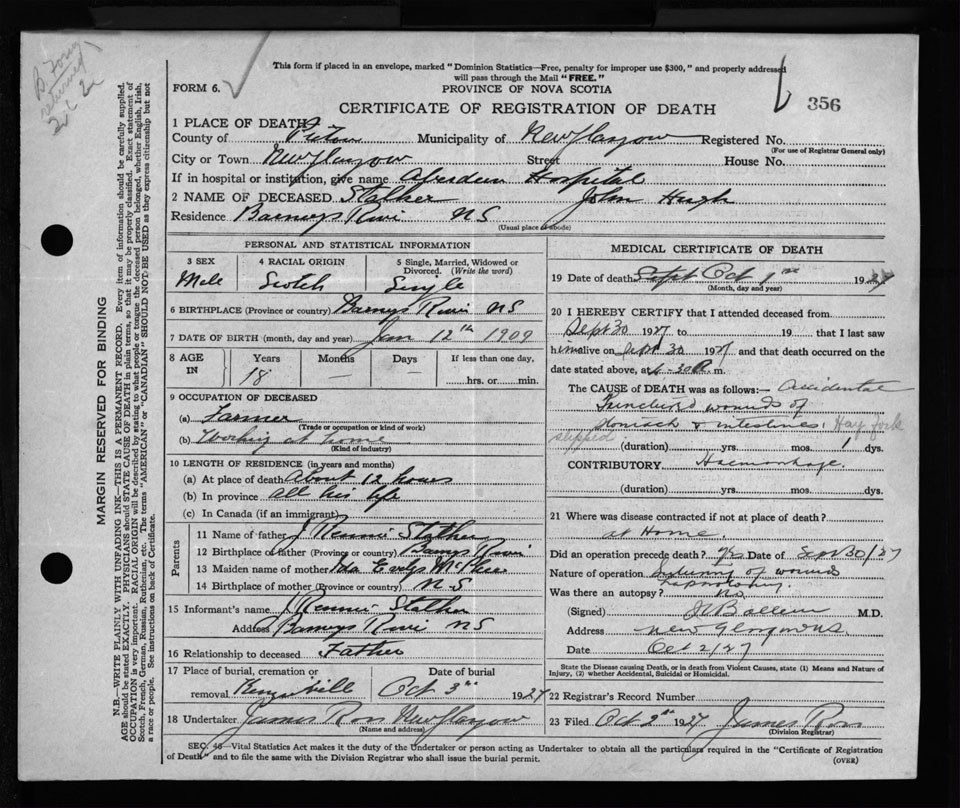 B Form
returned
This form if placed in an envelope, marked "Dominion Statistics—Free, penalty for improper use $300," and properly addressed
will pass through the Mail "FREE."
FORM 6.
PROVINCE OF NOVA SCOTIA
CERTIFICATE OF REGISTRATION OF DEATH
356
1 PLACE OF DEATH
County of Pictou Municipality of New Glasgow Registered No.
(For use of Registrar General only)
City or Town New Glasgow Street House No.
If in hospital or institution, give name Aberdeen Hospital
2 NAME OF DECEASED Stalker John Hugh
Residence Barneys River NS
(Usual place of abode)
PERSONAL AND STATISTICAL INFORMATION
3 SEX 4 RACIAL ORIGIN 5 Single, Married, Widowed or
Divorced. (Write the word)
Male Scotch Single
6 BIRTHPLACE (Province or country) Barneys River NS
7 DATE OF BIRTH (month, day and year) Jan 12th 1909
8 AGE IN Years Months Days If less than one day,
18 — — hrs. or min.
9 OCCUPATION OF DECEASED
(a) Farmer
(Trade or occupation or kind of work)
(b) Working at home
(Kind of industry)
10 LENGTH OF RESIDENCE (in years and months)
(a) At place of death about 12 hours
(b) In province all his life
(c) In Canada (if an immigrant)
Parents
11 Name of father J Rennie Stalker
12 Birthplace of father (Province or country) Barneys River
13 Maiden name of mother Ida McPhee
14 Birthplace of mother (Province or country) N-S
15 Informant's name J Rennie Stalker
Address Barneys River NS
16 Relationship to deceased Father
17 Place of burial, cremation or Date of burial
removal Oct 3rd 1927
18 Undertaker James Ross New Glasgow
(Name and address)
MEDICAL CERTIFICATE OF DEATH
19 Date of death Sept Oct 1st 1927
(Month, day and year)
20 I HEREBY CERTIFY that I attended deceased from
Sept 30 1927 to 19 that I last saw
him alive on Sept 30 1927 and that death occurred on the
date stated above, at 4-30 A m.
The CAUSE of DEATH was as follows:— Accidental
Punctured wounds of
stomach & intestines. Hay fork
slipped (duration) yrs. mos. 1 dys.
CONTRIBUTORY Haemorrhage.
(duration) yrs. mos. dys.
21 Where was disease contracted if not at place of death?
at Home.
Did an operation precede death? Yes Date of Sept 30/27
Nature of operation Suturing of wounds
Laparotomy.
Was there an autopsy? No.
(Signed) M.D.
Address New Glasgow NS.
Date Oct 2/27
State the Disease causing Death, or in death from Violent Causes, state (1) Means and Nature of
Injury, (2) whether Accidental, Suicidal or Homicidal.
22 Registrar's Record Number
23 Filed Oct 2nd 1927 James Ross
(Division Registrar)
SEC. 46—Vital Statistics Act makes it the duty of the Undertaker or person acting as Undertaker to obtain all the particulars required in the "Certificate of Registration
of Death" and to file the same with the Division Registrar who shall issue the burial permit.
(OVER)
MARGIN RESERVED FOR BINDING
N.B.—WRITE PLAINLY WITH UNFADING INK—THIS IS A PERMANENT RECORD. Every item of information should be carefully supplied.
AGE should be stated EXACTLY. PHYSICIANS should STATE CAUSE OF DEATH in plain terms, so that it may be properly classified. Exact statement of
OCCUPATION is very important. RACIAL ORIGIN will be described by stating to what people or tongue the deceased person belonged, whether English, Irish,
Scotch, French, German, Russian, Ruthenian, etc. The terms "AMERICAN" or "CANADIAN" SHOULD NOT BE USED as they express citizenship but not
a race or people. See instructions on back of Certificate.